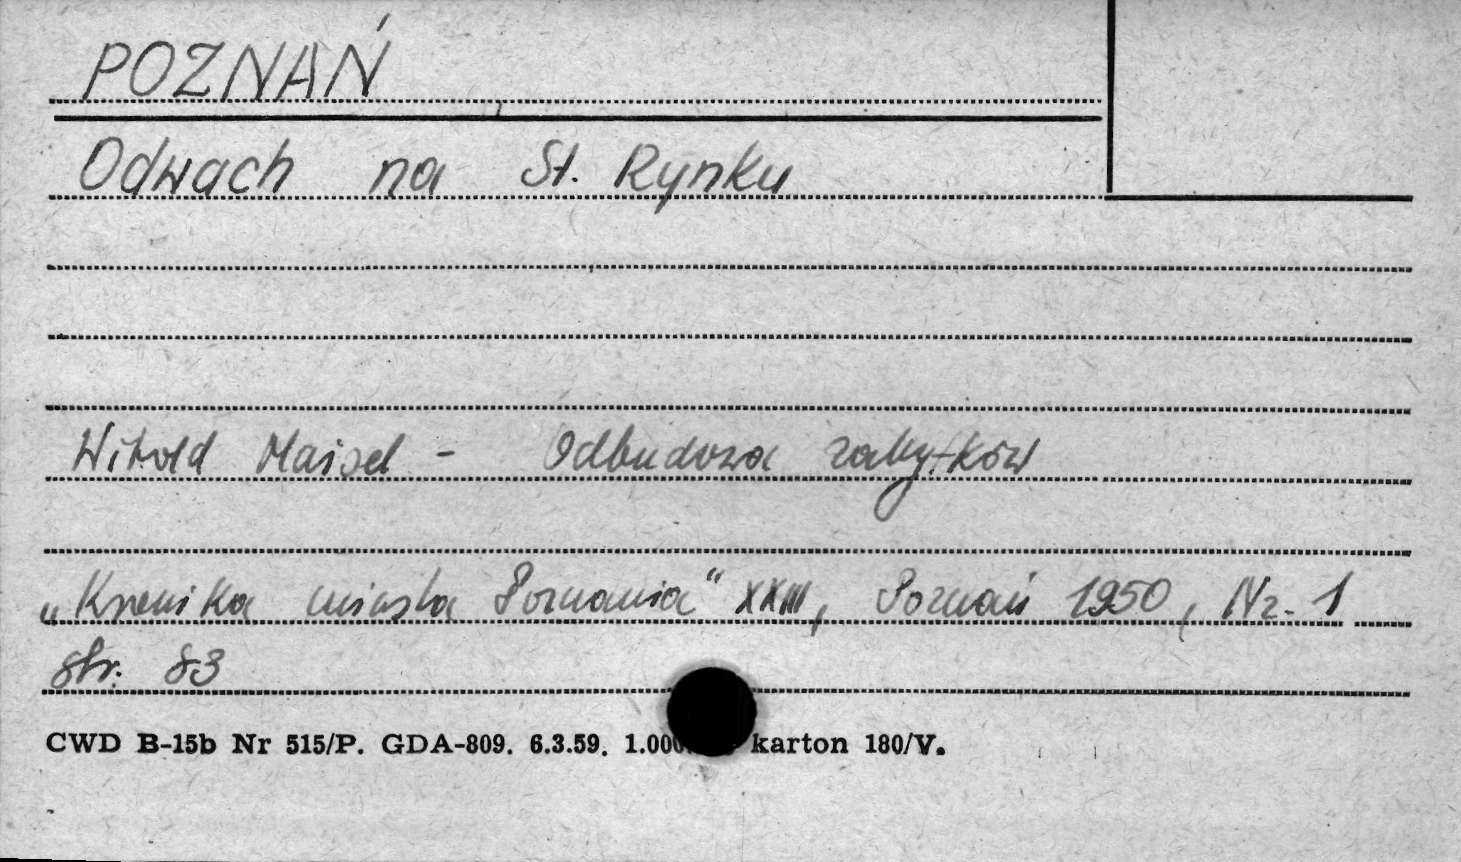 POZNAŃ
Odwach na St. Rynku
Witold Maisel - Odbudowa zabytków
„Kronika miasta Poznania" XXIII, Poznań 1950, Nr. 1
str. 83
CWD B-15b Nr 515/P. GDA-809. 6.3.59. karton 180/V.